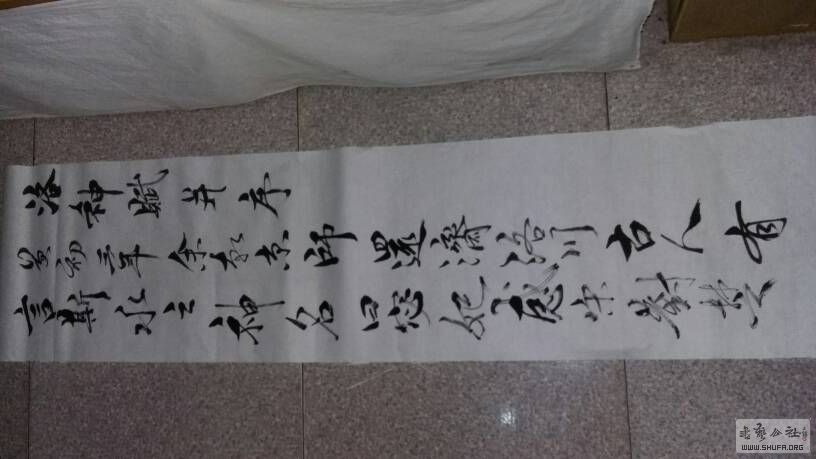 洛神賦并序
黃初三年余朝京師還濟洛川古人有
言斯水之神名曰宓妃感宋玉對楚
書藝公社
WWW.SHUFA.ORG